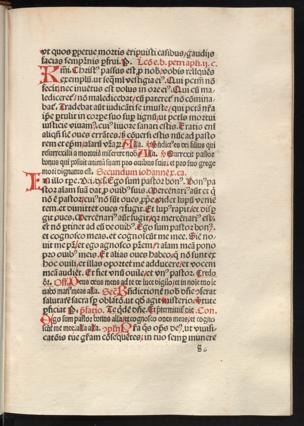 ut quos ppetue mortis eripuisti casibus, gaudijs
facias sempitnis pfrui. P. Lcō e.b. petri apli. ij. c.
Krmi. Christ' passus est p nob, vobis relīquēs
exemplū. ut seqmi vestigia ei'. Qui pctm nō
fecit, nec inuētus est dolus in ore ei'. Qui cū ma
lediceret, nō maledicebat, cū pateret nō cōmina
bat. Tradebat aūt iudicāti se iniuste, qui pctā nrā
ipe ptulit in corpe suo sup lignū, ut pctis mortui
iusticie viuam', cui' liuore sanati estis. Eratis eni
aliqn sic oues errātes, s cōuersi estis nūc ad pasto
rem et epm aiarū vrarum. Alla.
resurrexisti a mortuis miserere nob. Alla. Surrexit pastor
bonus qui posuit aiam suam pro ouibus suis, et pro suo grege
mori dignatus est. Secundum iohannem. ca.
In illo tpe. D. i. d. s. Ego sum pastor bon'. Bon' pa
stor aiam suā dat p ouib' suis. Mercenari' aūt et q
nō ē pastor, cui' nō sūt oues ppe, videt lupū venie
tem, et dimittit oues et fugit. Et lup' rapit, et dis
git oues. Mercenari' aūt fugit, qr mercenari' est,
et nō ptinet ad eū de ouib'. Ego sum pastor bon',
et cognosco meas, et cognoscūt me mee. Sic no
uit me pr, et ego agnosco prem, et aiam meā pono
pro ouib' meis. Et alias oues habeo, q nō sunt ex
hoc ouili, et illas oportet me adducere, et vocem
meā audiēt. Et fiet vnū ouile, et vn' pastor. Credo.
Off. Deus deus meus ad te de luce vigilo, et in noīe tuo le
uabo man' meas alla. Scē. Bndictionē nob dne cferat
salutarē sacra sp oblatō, ut qd agit misterio, virtute
pficiat. P. pfatio. Te qdē dne. Et pterminū vic. Con.
Ego sum pastor bonus alla, et cognosco oues meas, et cogno
scūt me mee. alla alla.
catōis tue gram cōsequētes, in tuo semp munere